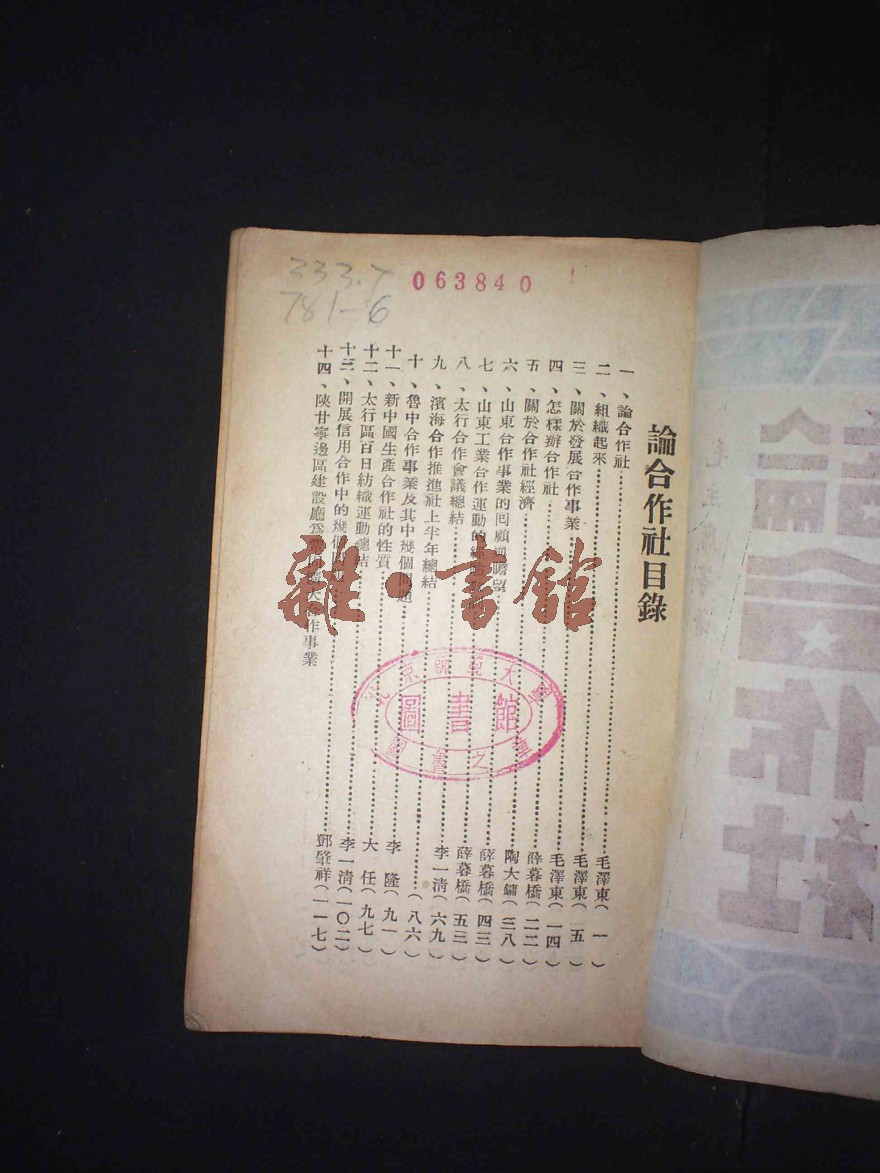 333.7
781-6
063840
論合作社目錄
一、論合作社
二、組織起來
三、關於發展合作事業
四、怎樣辦合作社
五、關於合作社經濟
六、山東合作事業的回顧與瞻望
七、山東工業合作運動的
八、太行合作會議總結
九、濱海合作推進社上半年總結
十、魯中合作事業及其中幾個問題
十一、新中國生產合作社的性質
十二、太行區百日紡織運動總結
十三、開展信用合作中的幾個
十四、陝甘寧邊區建設廳 合作事業
毛澤東(一)
毛澤東(五)
毛澤東(一四)
薛暮橋(二二)
陶大鏞(三八)
薛暮橋(四三)
薛暮橋(五三)
李一清(六九)
(八六)
李隆(九一)
大任(九七)
李一清(一〇二)
鄧肇祥(一一七)
雜·書館
圖書館